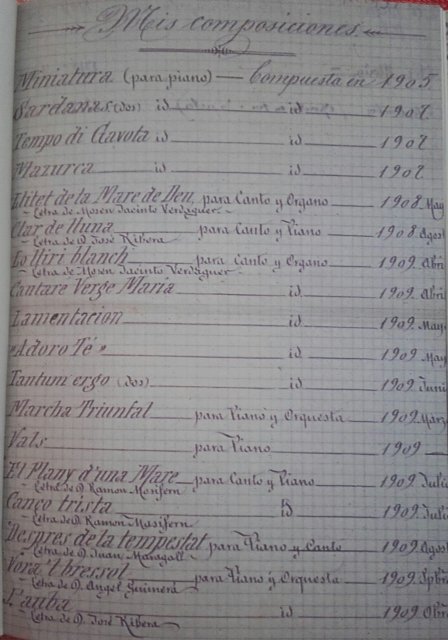 Mis composiciones
Miniatura (para piano) — Compuesta en 1905
Sardanas (dos) id id 1907
Tempo di Gavota id id 1907
Mazurca id id 1907
Llitet de la Mare de Deu para Canto y Organo 1908 May
Letra de Mosen Jacinto Verdaguer
Clar de lluna para Canto y Piano 1908 Agost
Letra de D. José Ribera
Lo lliri blanch para Canto y Organo 1909 Abri
Letra de Mosen Jacinto Verdaguer
Cantare Verge María id 1909 Abri
Lamentacion id 1909 May
"Adoro Té" id 1909 May
Tantum ergo (dos) id 1909 Juni
Marcha Triunfal para Piano y Orquesta 1909 Marz
Vals para Piano 1909
El Plany d'una Mare para Canto y Piano 1909 Juli
Letra de D. Ramon Masifern
Canço trista id 1909 Juli
Letra de D. Ramon Masifern
Despres de la tempestat para Piano y Canto 1909 Agos
Letra de D. Juan Maragall
Vora 'l bressol para Piano y Orquesta 1909 Spbr
Letra de D. Angel Guimerá
L'auba id 1909 Obr
Letra de D. José Ribera